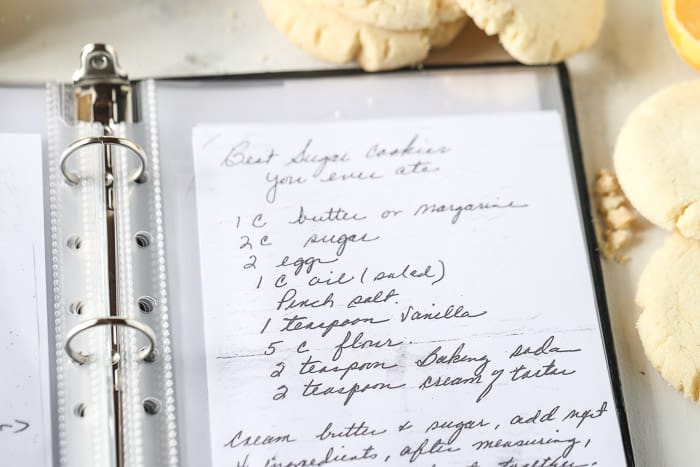 Best Sugar Cookies
you ever ate
1 C butter or margarine
2 C sugar
2 eggs
1 C oil (salad)
Pinch salt.
1 teaspoon Vanilla
5 C flour.
2 teaspoon Baking soda
2 teaspoon cream of tartar
Cream butter & sugar, add next
4 ingredients, after measuring,
together.